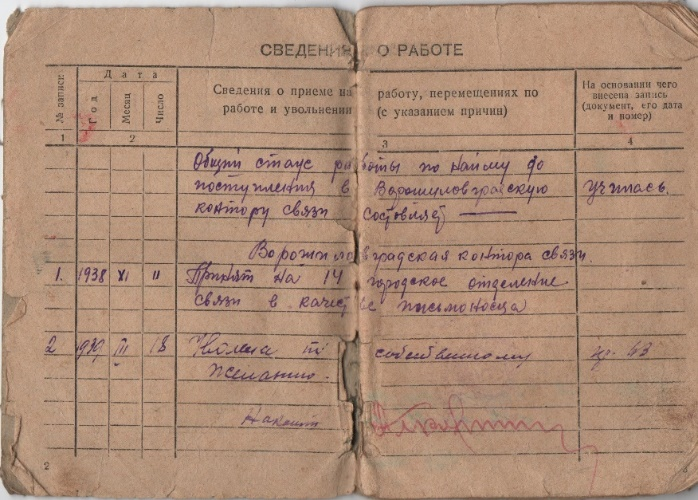 СВЕДЕНИЯ О РАБОТЕ
№ записи
Дата
Год
Месяц
Число
Сведения о приеме на работу, перемещениях по
работе и увольнении (с указанием причин)
На основании чего
внесена запись
(документ, его дата
и номер)
1 2 3 4
Общий стаус работы по найму до
поступления в Ворошиловградскую училась.
контору связи составляет —
Ворошиловградская контора связи.
1. 1938 XI 11 Принят на 14 городское отделение
связи в качестве письмоносца
2 1939 III 13 по собственному пр. 43
желанию.
2